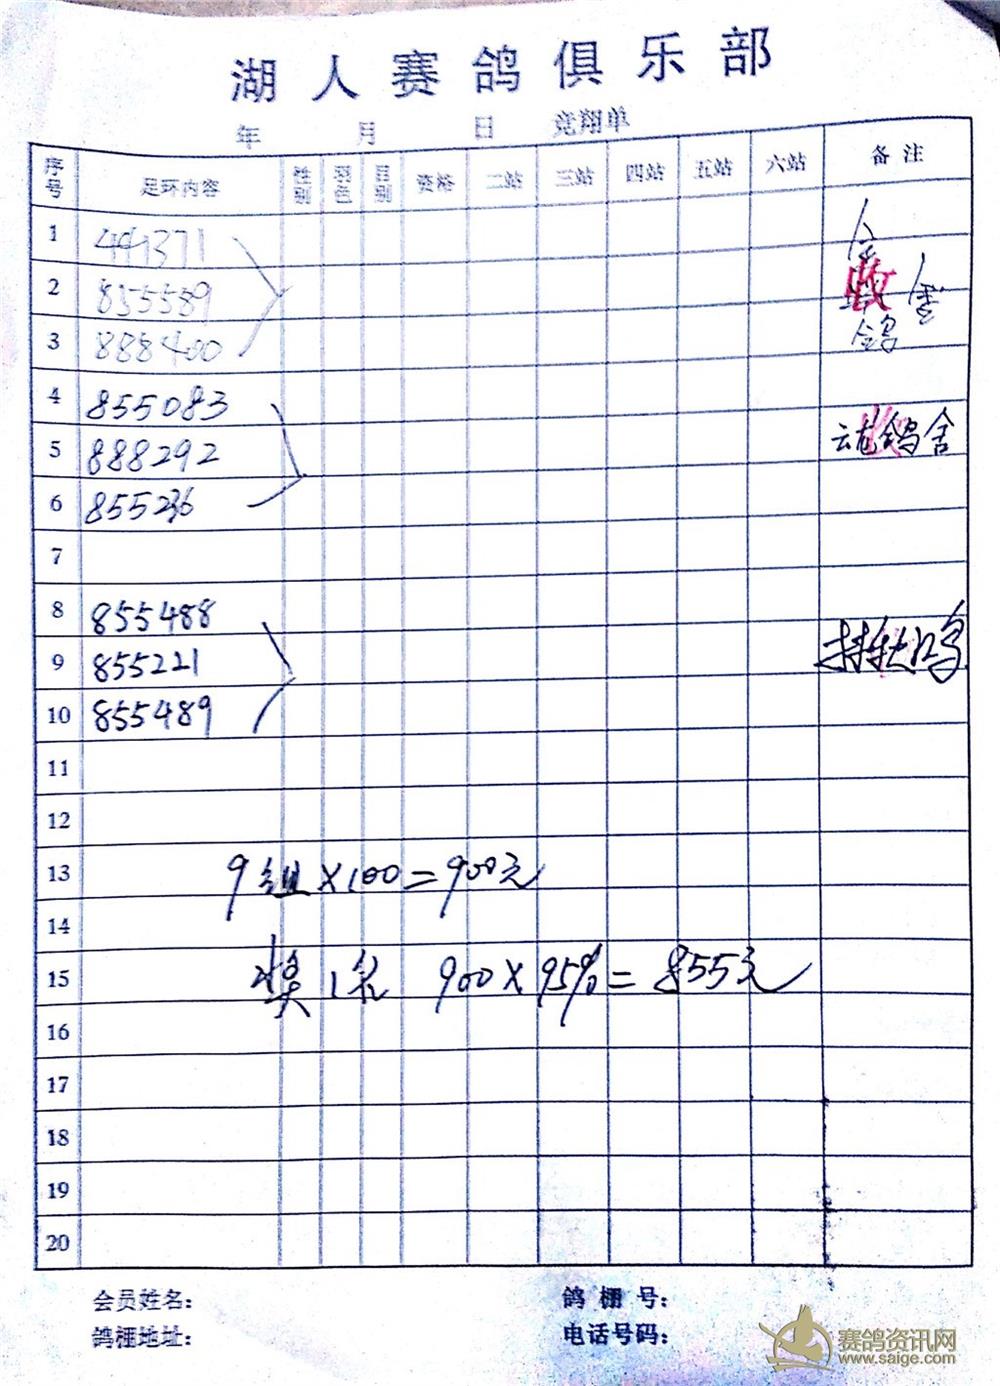 湖人赛鸽俱乐部
年 月 日 竞翔单
序号 足环内容 性别 羽色 目别 资格 二站 三站 四站 五站 六站 备注
1 441371
2 855589 收
3 888400 鸽
4 855083
5 888292 云龙鸽舍
6 855236
7
8 855488
9 855221
10 855489
11
12
13 9组×100=900元
14
15 奖1名 900×95%=855元
16
17
18
19
20
会员姓名： 鸽棚号：
鸽棚地址： 电话号码：
赛鸽资讯网
www.saige.com